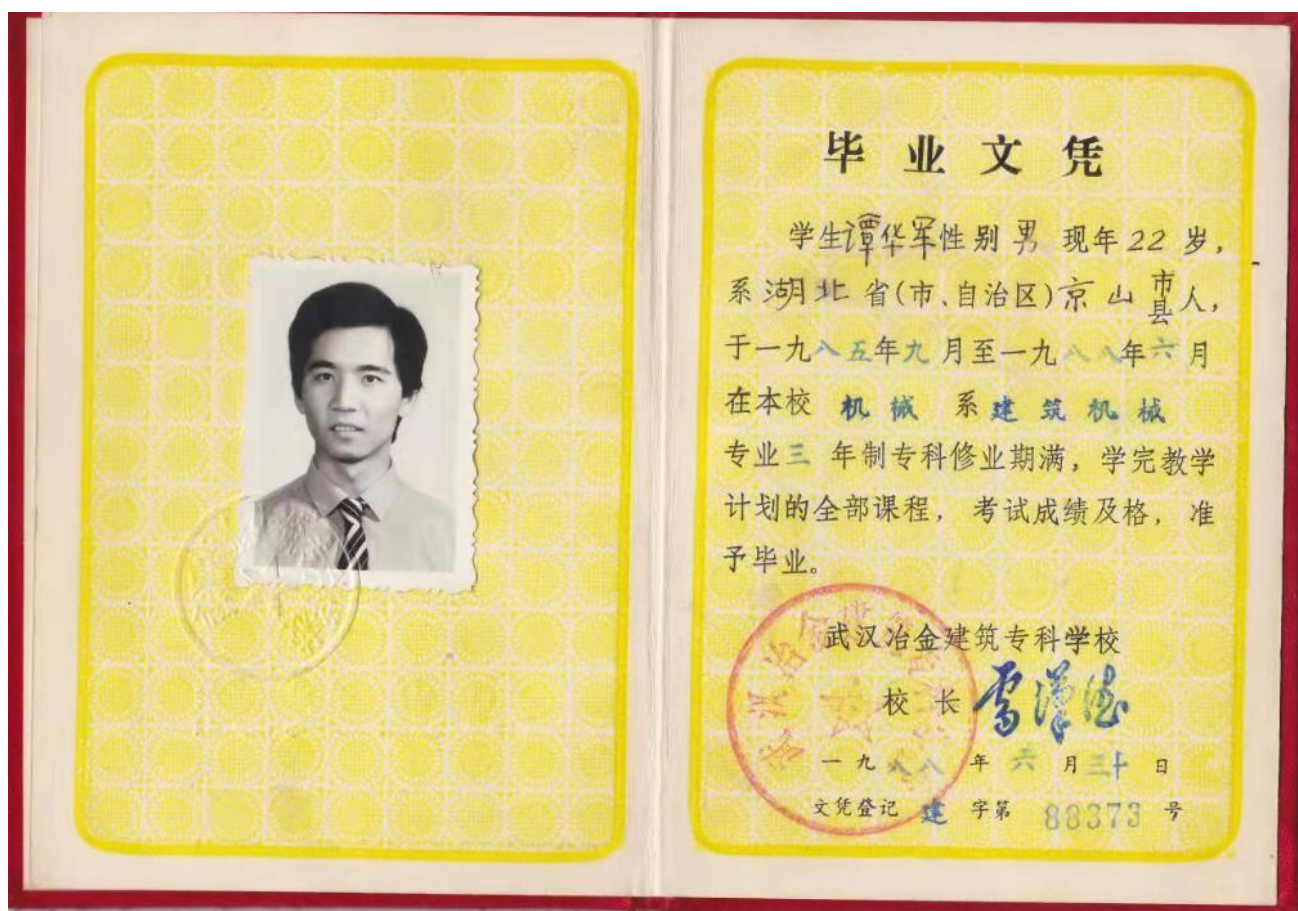 毕业文凭
学生谭华军性别男现年22岁,
系湖北省(市、自治区)京山市县人,
于一九八五年九月至一九八八年六月
在本校机械系建筑机械
专业三年制专科修业期满,学完教学
计划的全部课程,考试成绩及格,准
予毕业。
武汉冶金建筑专科学校
校长
一九八八年六月三十日
文凭登记建字第88373号